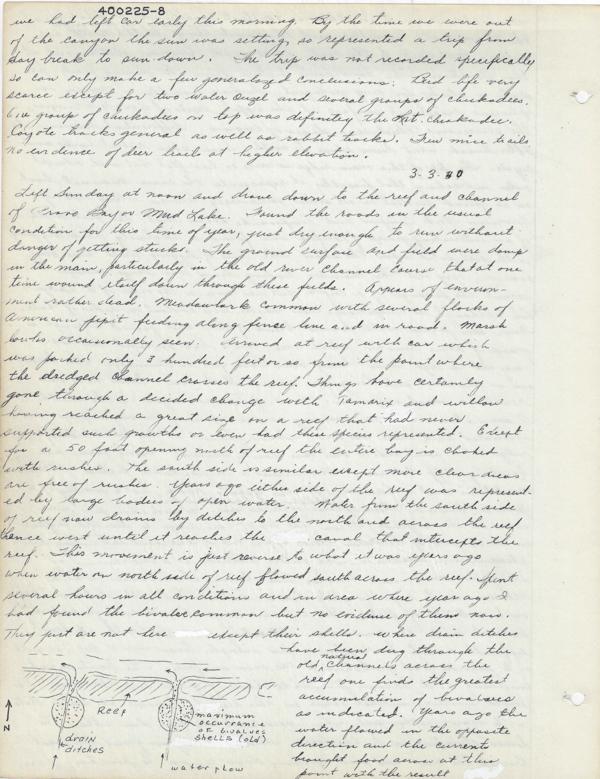 400225-8
we had left car early this morning. By the time we were out
of the canyon the sun was setting, so represented a trip from
day break to sun down. The trip was not recorded specifically
so can only make a few generalized conclusions: Bird life very
scarce except for two water ouzel and several groups of chickadees.
One group of chickadees on top was definitely the Mt. chickadee.
Coyote tracks general as well as rabbit tracks. Few mice trails
no evidence of deer trails at higher elevation.
3-3-40
Left Sunday at noon and drove down to the reef and channel
of Provo Bay or Mud Lake. Found the roads in the usual
condition for this time of year, just dry enough to run without
danger of getting stuck. The ground surface and field were damp
in the main, particularly in the old river channel course that at one
time wound itself down through these fields. Appears of environ-
ment rather dead. Meadowlark common with several flocks of
American pipit feeding along fence line and in road. Marsh
hawks occasionally seen. Arrived at reef with car which
was parked only 3 hundred feet or so from the point where
the dredged channel crosses the reef. Things have certainly
gone through a decided change with Tamarix and willow
having reached a great size on a reef that had never
supported such growths or even had these species represented. Except
for a 50 foot opening north of reef the entire bay is choked
with rushes. The south side is similar except more clear areas
are free of rushes. Years ago either side of the reef was represent-
ed by large bodies of open water. Water from the south side
of reef now drains by ditches to the north and across the reef
thence west until it reaches the canal that intercepts the
reef. This movement is just reverse to what it was years ago
when water on north side of reef flowed south across the reef. Spent
several hours in all conditions and in area where years ago I
had found the bivalve common but no evidence of them now.
They just are not here except their shells. Where drain ditches
have been dug through the
old natural channels across the
reef one finds the greatest
accumulation of bivalves
as indicated. Years ago the
water flowed in the opposite
direction and the currents
brought food across at this
point with the result
Reef
N
drain
ditches
maximum
occurrance
of bivalves
shells (old)
water flow